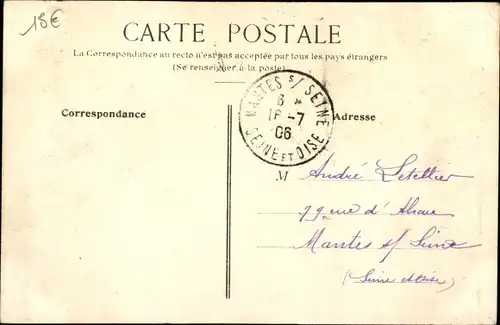 15€
CARTE POSTALE
La Correspondance au recto n'est pas acceptée par tous les pays étrangers
(Se renseigner à la poste)
MANTES S/ SEINE
6 *
16 -7
06
SEINE ET OISE
Correspondance
Adresse
M
André Letellier
rue d'
Mantes s/ Seine
(Seine et Oise)